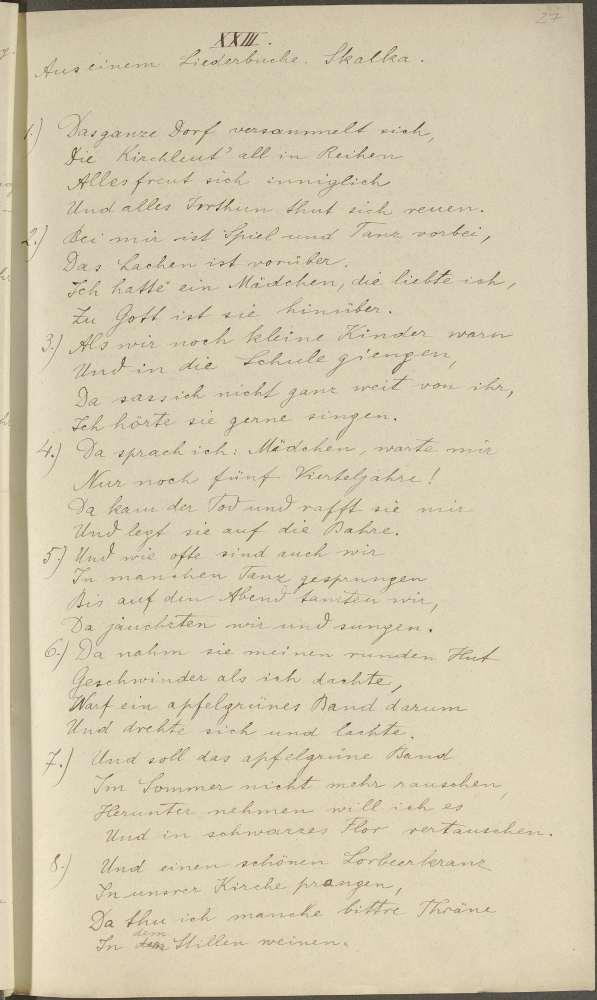 27
XXIII.
Aus einem Liederbuche. Skalka.
1.) Das ganze Dorf versammelt sich,
Die Kirchleut' all in Reihen
Alles freut sich inniglich
Und alles Forthun thut sich reuen.
2.) Bei mir ist Spiel und Tanz vorbei,
Das Lachen ist vorüber.
Ich hatte ein Mädchen, die liebte ich,
Zu Gott ist sie hinüber.
3.) Als wir noch kleine Kinder warn
Und in die Schule giengen,
Da sass ich nicht ganz weit von ihr,
Ich hörte sie gerne singen.
4.) Da sprach ich: Mädchen, warte mir
Nur noch fünf Vierteljahre!
Da kam der Tod und rafft sie mir
Und legt sie auf die Bahre.
5.) Und wie ofte sind auch wir
In manchen Tanz gesprungen
Bis auf den Abend tanzten wir,
Da jauchzten wir und sungen.
6.) Da nahm sie meinen runden Hut
Geschwinder als ich dachte,
Warf ein apfelgrünes Band darum
Und drehte sich und lachte.
7.) Und soll das apfelgrüne Band
Im Sommer nicht mehr rauschen,
Herunter nehmen will ich es
Und in schwarzes Flor vertauschen.
8.) Und einen schönen Lorbeerkranz
In unsrer Kirche prangen,
Da thu ich manche bittre Thräne
In dem Stillen weinen.